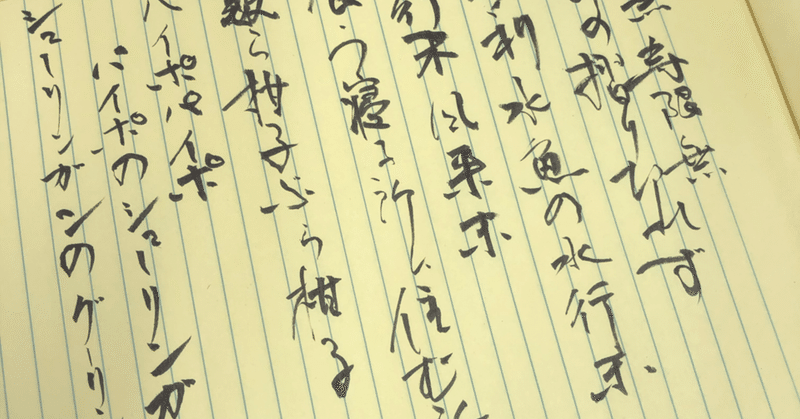 寿限無
の摺りきれず
利水魚の水行末
行末風来末
う寝る所に住む
ら柑子ぶら柑子
イポパイポ
パイポのシューリンガ
シューリンガンのグーリン